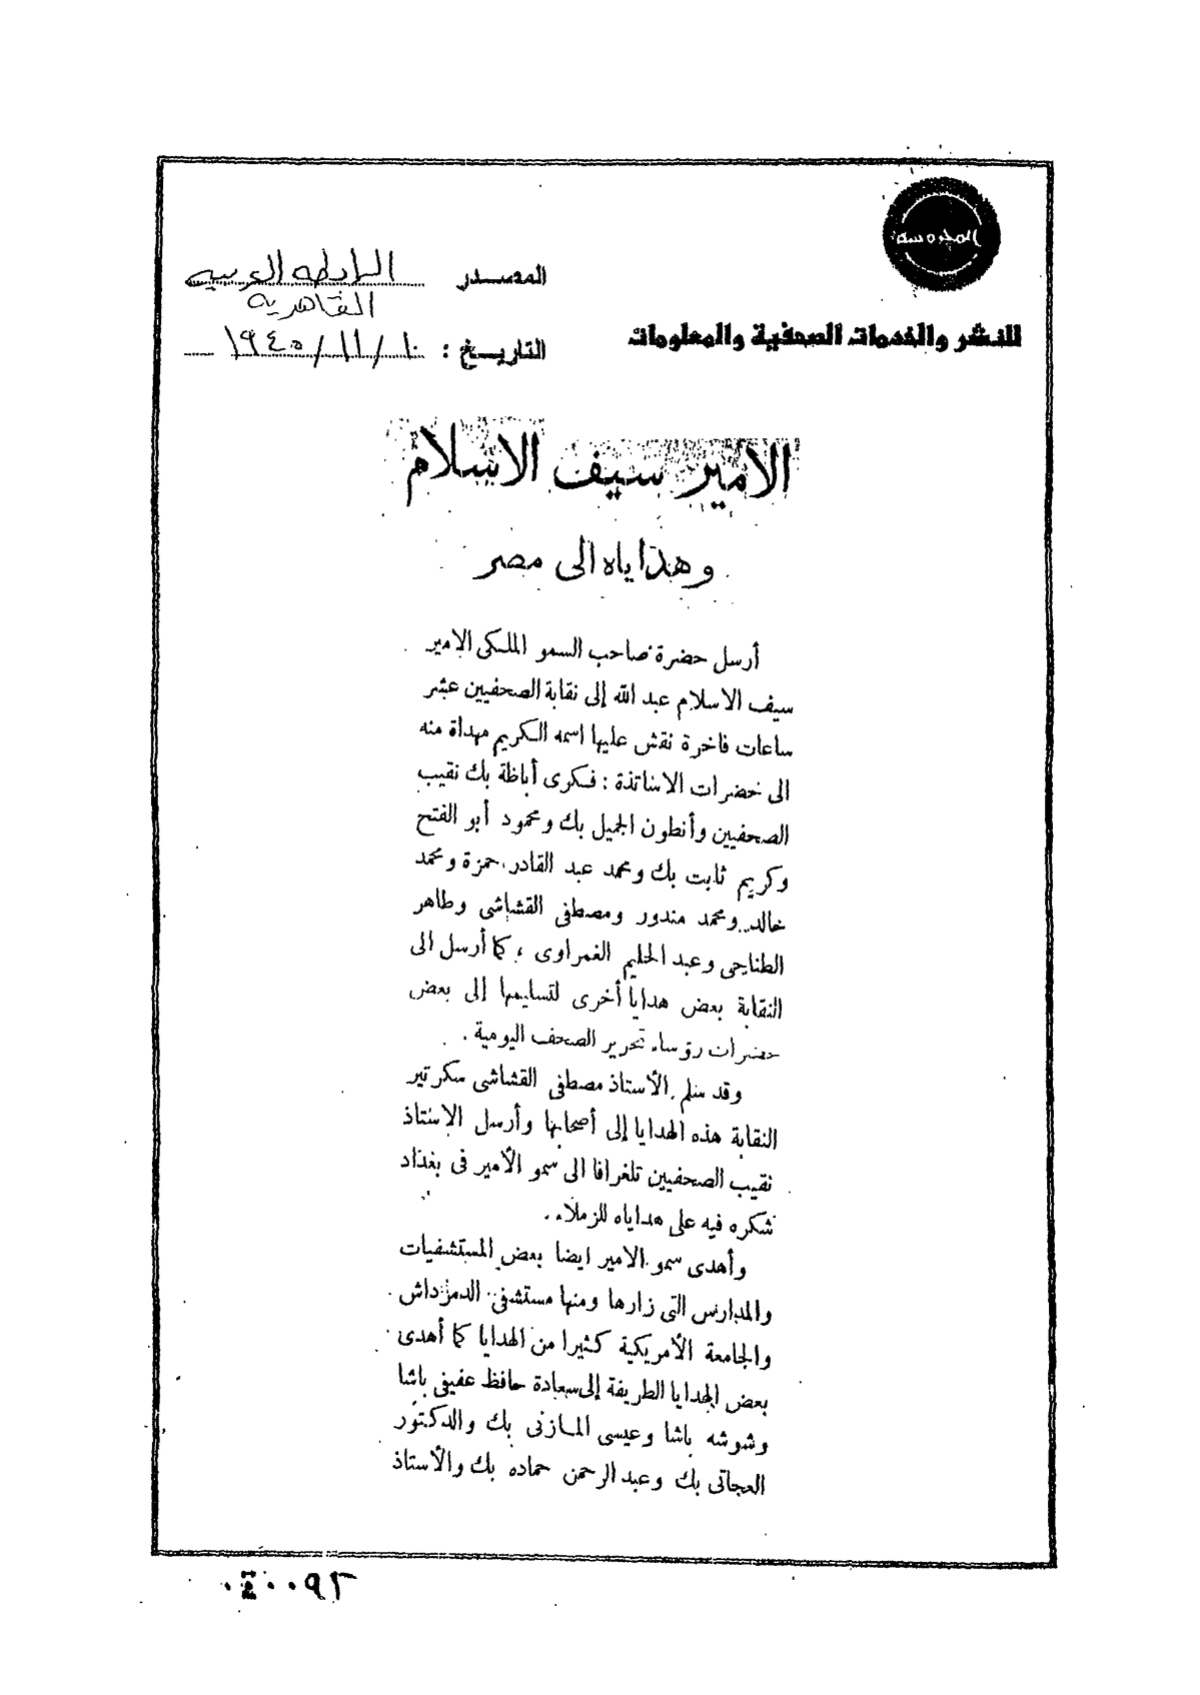 المحروسة
للنشر والخدمات الصحفية والمعلومات
المصدر الرابطه العربيه
القاهرية
التاريخ : ١٠/١١/١٩٤٥
الامير سيف الاسلام
وهداياه الى مصر
أرسل حضرة صاحب السمو الملكى الامير
سيف الاسلام عبد الله إلى نقابة الصحفيين عشر
ساعات فاخرة نقش عليها اسمه الكريم مهداة منه
الى حضرات الاساتذة : فكرى أباظة بك نقيب
الصحفيين وأنطون الجميل بك ومحمود أبو الفتح
وكريم ثابت بك ومحمد عبد القادر حمزة ومحمد
خالد ومحمد مندور ومصطفى القشاشى وطاهر
الطناحى وعبد الحليم الغمراوى ، كما أرسل الى
النقابة بعض هدايا أخرى لتسليمها إلى بعض
حضرات رؤساء تحرير الصحف اليومية .
وقد سلم الأستاذ مصطفى القشاشى سكرتير
النقابة هذه الهدايا إلى أصحابها وأرسل الاستاذ
نقيب الصحفيين تلغرافا الى سمو الأمير فى بغداد
شكره فيه على هداياه للزملاء .
وأهدى سمو الامير ايضا بعض المستشفيات
والمدارس التى زارها ومنها مستشفى الدمرداش
والجامعة الأمريكية كثيرا من الهدايا كما أهدى
بعض الهدايا الطريفة إلى سعادة حافظ عفيفى باشا
وشوشه باشا وعيسى المازنى بك والدكتور
العجاتى بك وعبد الرحمن حماده بك والأستاذ
٠٤٠٠٩٢